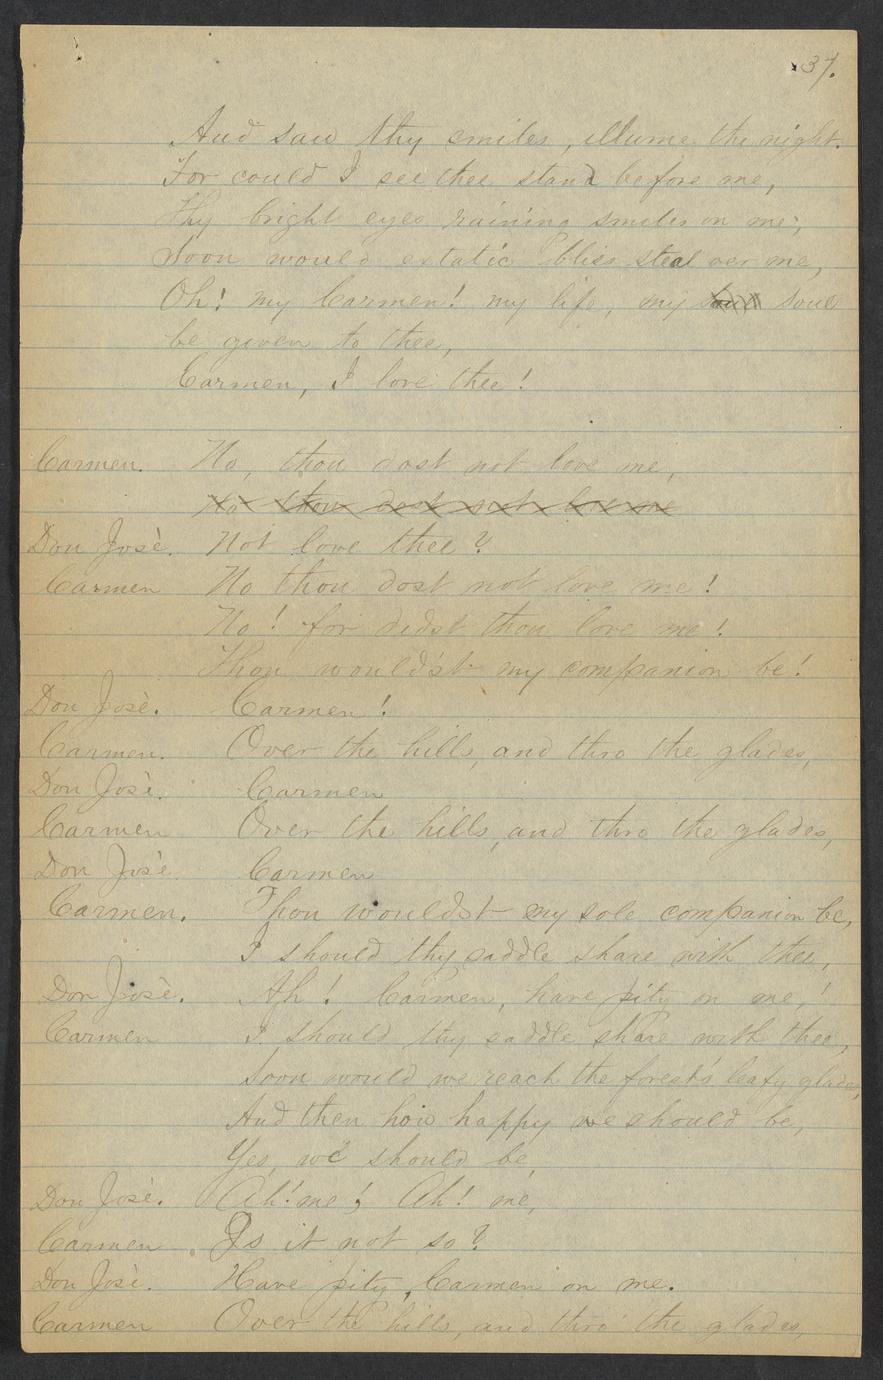 37.
And saw thy smiles, illume the night.
For could I see thee stand before me,
Thy bright eyes raining smiles on me;
Soon would extatic bliss steal oer me,
Oh! my Carmen! my life, my soul soul
be given to thee,
Carmen, I love thee!
Carmen. No, thou dost not love me,
No thou dost not love me
Don José. Not love thee?
Carmen No thou dost not love me!
No! for didst thou love me!
Thou would'st my companion be!
Don José. Carmen!
Carmen. Over the hills, and thro the glades,
Don José. Carmen
Carmen Over the hills, and thro the glades,
Don José Carmen
Carmen. Thou wouldst my sole companion be,
I should thy saddle share with thee,
Don José. Ah! Carmen, have pity on me,!
Carmen I should thy saddle share with thee,
Soon would we reach the forest's leafy glades,
And then how happy we should be,
Yes, we should be
Don José. Ah! me! Ah! me,
Carmen Is it not so?
Don José. Have pity, Carmen on me.
Carmen Over the hills, and thro' the glades,